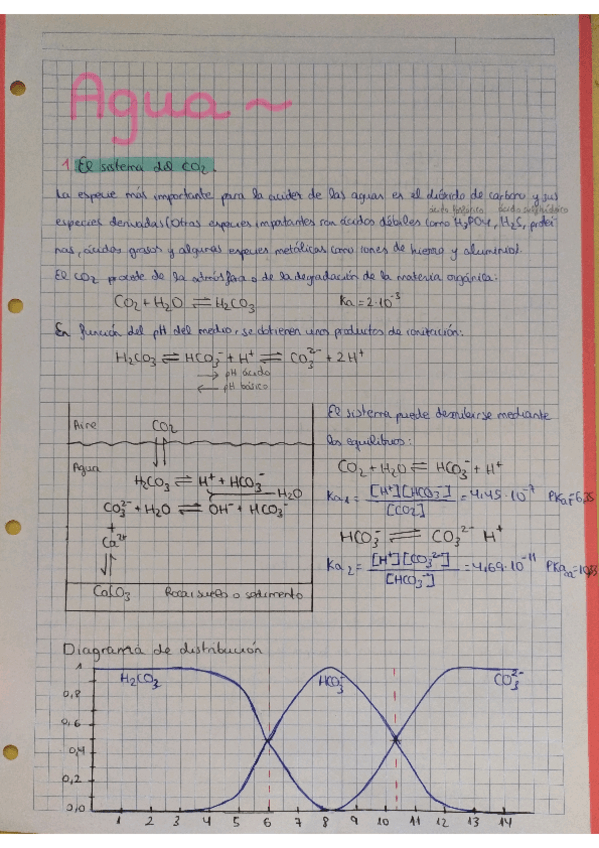 Agua ~
1. El sistema del CO₂.
La especie más importante para la acidez de las aguas es el dióxido de carbono y sus
ácido fosfórico ácido sulfhídrico
especies derivadas (Otras especies importantes son ácidos débiles como H₃PO₄, H₂S, proteí-
nas, ácidos grasos y algunas especies metálicas como iones de hierro y aluminio).
El CO₂ procede de la atmósfera o de la degradación de la materia orgánica:
CO₂ + H₂O ⇌ H₂CO₃ Ka = 2·10⁻³
En función del pH del medio, se obtienen unos productos de ionización:
H₂CO₃ ⇌ HCO₃⁻ + H⁺ ⇌ CO₃²⁻ + 2H⁺
→ pH ácido
← pH básico
Aire CO₂
Agua
H₂CO₃ ⇌ H⁺ + HCO₃⁻
H₂O
CO₃²⁻ + H₂O ⇌ OH⁻ + HCO₃⁻
+
Ca²⁺
CaCO₃ Roca, suelo o sedimento
El sistema puede describirse mediante
los equilibrios:
CO₂ + H₂O ⇌ HCO₃⁻ + H⁺
Ka₁ = [H⁺][HCO₃⁻] / [CO₂] = 4,45·10⁻⁷ PKa₁=6,35
HCO₃⁻ ⇌ CO₃²⁻ H⁺
Ka₂ = [H⁺][CO₃²⁻] / [HCO₃⁻] = 4,69·10⁻¹¹ PKa₂=10,33
Diagrama de distribución
1
H₂CO₃ HCO₃⁻ CO₃²⁻
0,8
0,6
0,4
0,2
0,0
1 2 3 4 5 6 7 8 9 10 11 12 13 14